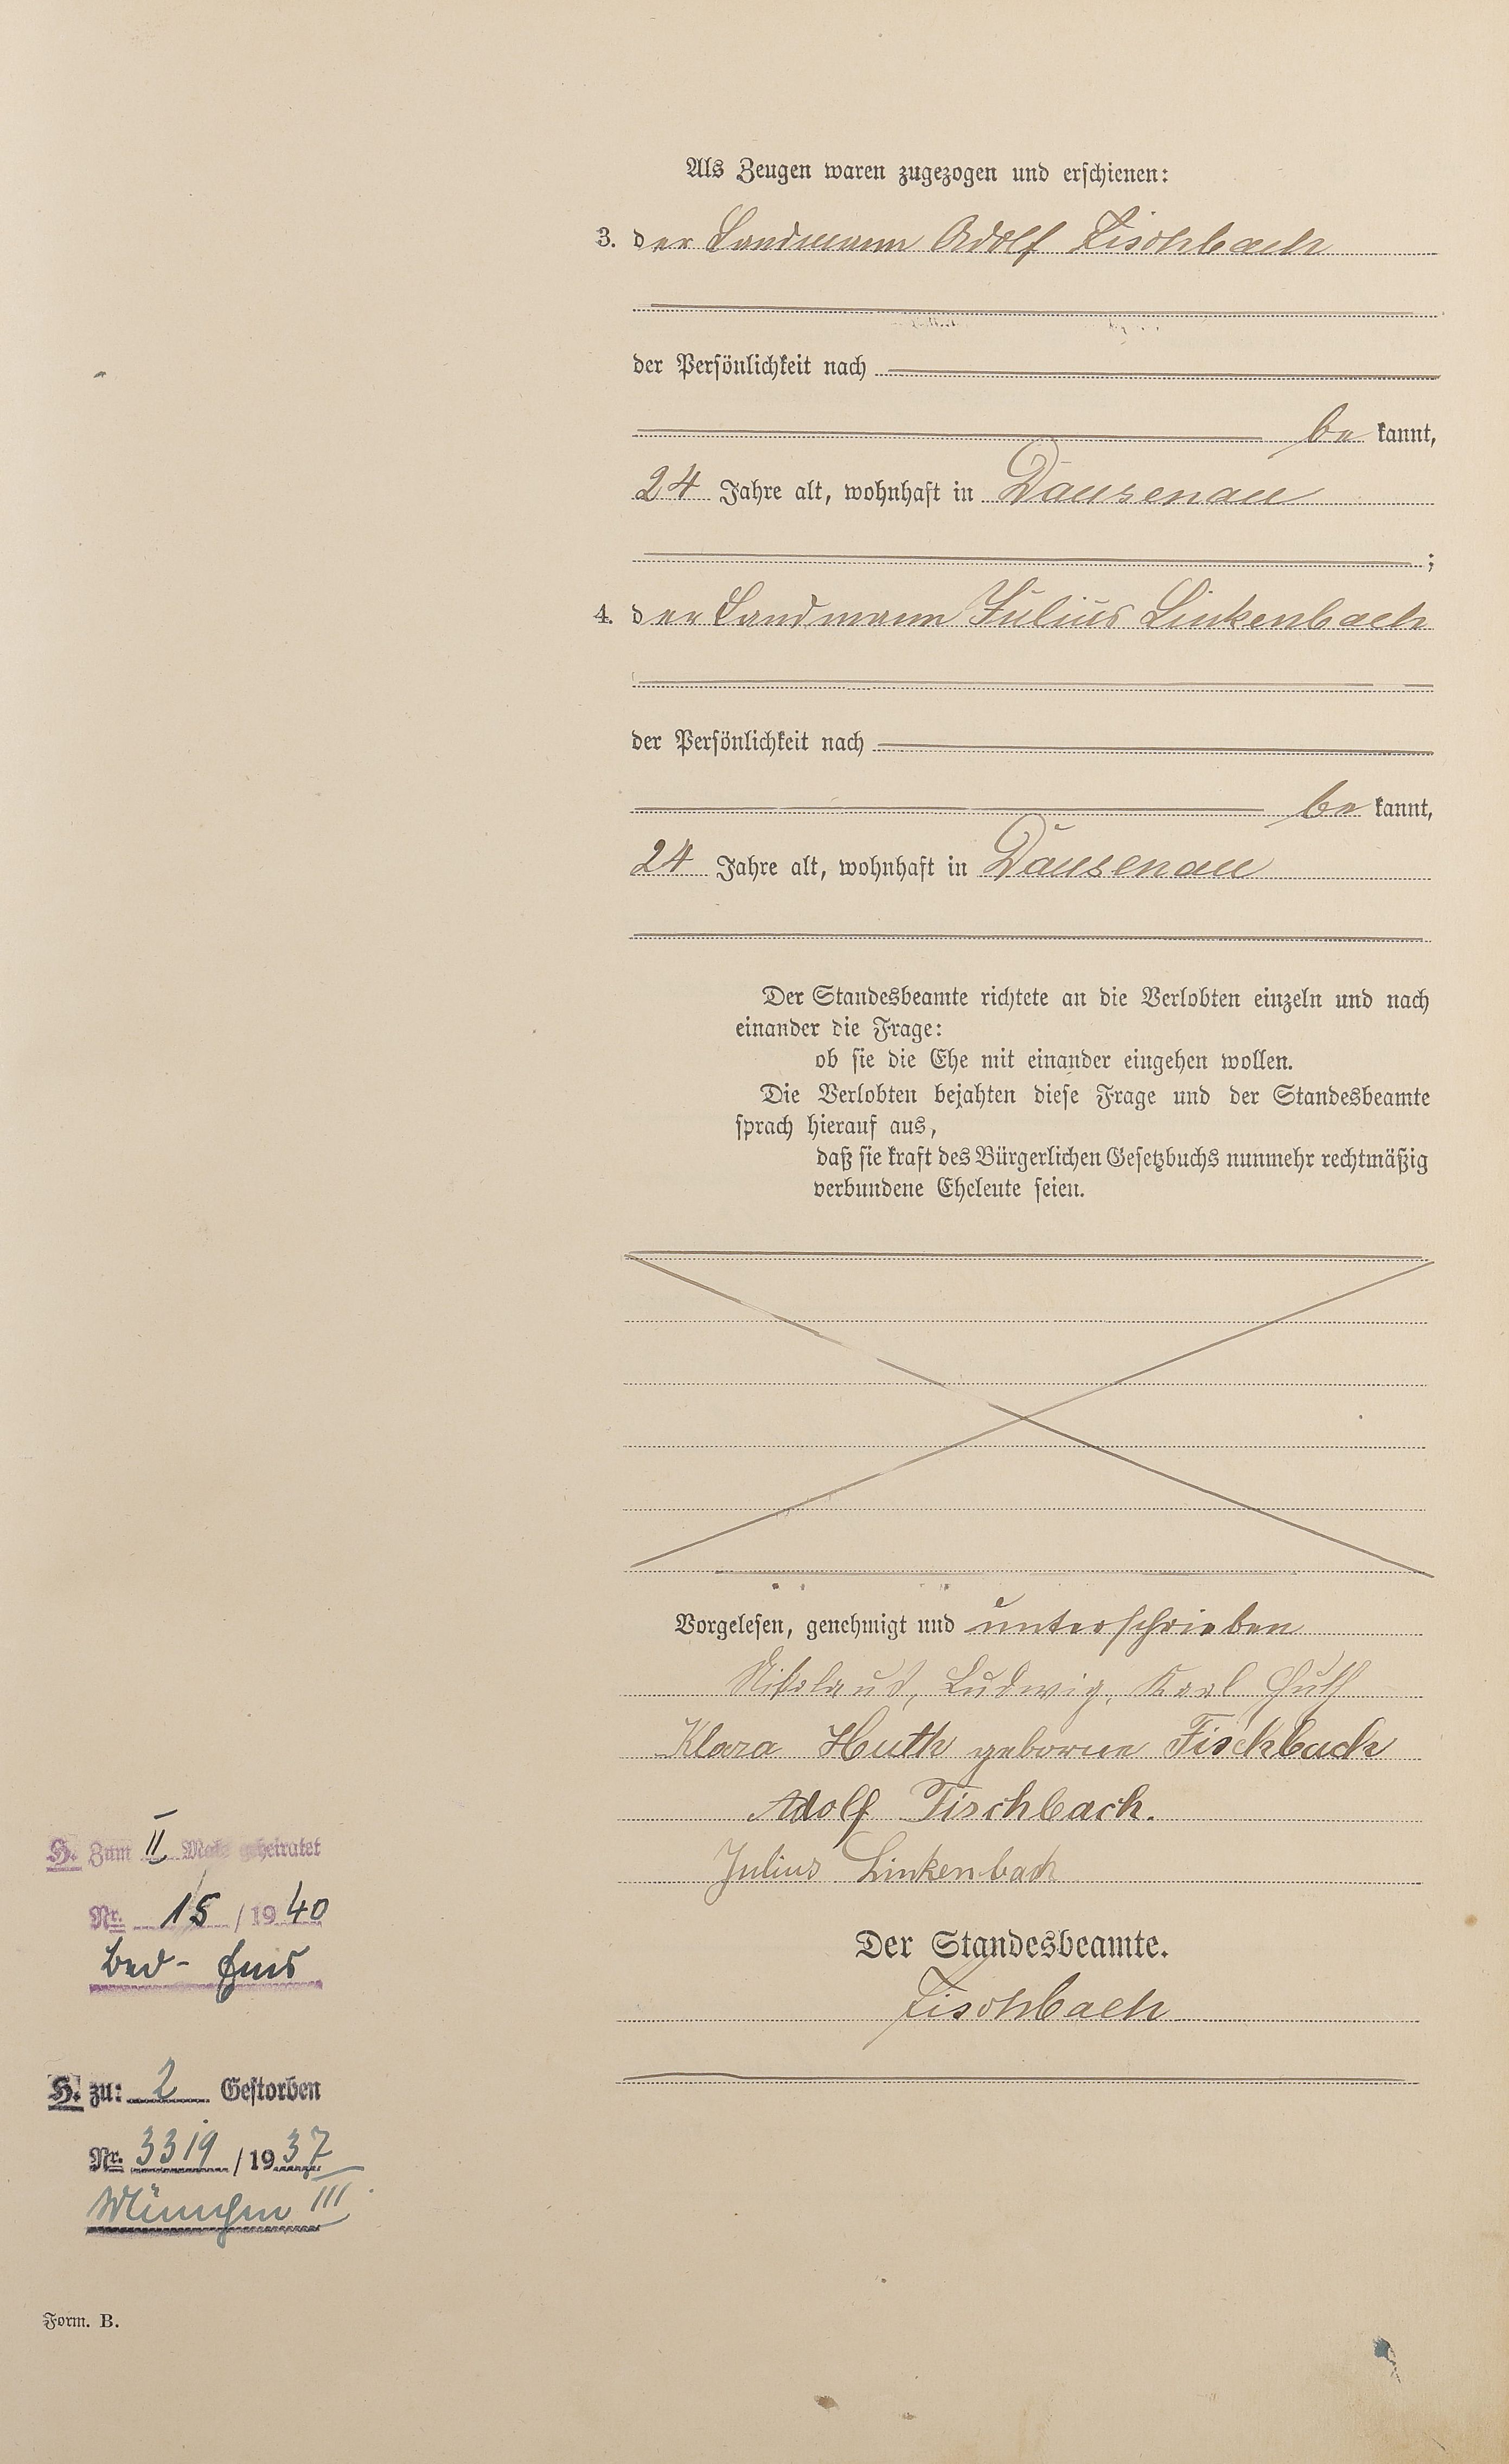 Als Zeugen waren zugezogen und erschienen:
3. der Landmann Adolf Fischbach
der Persönlichkeit nach
be kannt,
24 Jahre alt, wohnhaft in Dausenau
;
4. der Landmann Julius Linkenbach
der Persönlichkeit nach
be kannt,
24 Jahre alt, wohnhaft in Dausenau
Der Standesbeamte richtete an die Verlobten einzeln und nach
einander die Frage:
ob sie die Ehe mit einander eingehen wollen.
Die Verlobten bejahten diese Frage und der Standesbeamte
sprach hierauf aus,
daß sie kraft des Bürgerlichen Gesetzbuchs nunmehr rechtmäßig
verbundene Eheleute seien.
Vorgelesen, genehmigt und unterschrieben
Nikolaus, Ludwig, Karl Huth
Klara Huth geborne Fischbach
Adolf Fischbach.
Julius Linkenbach
Der Standesbeamte.
Fischbach
H. Zum II Male geheiratet
Nr. 15 / 1940
Bad-Ems
H. zu: 2 Gestorben
Nr. 3319 / 1937
München III
Form. B.